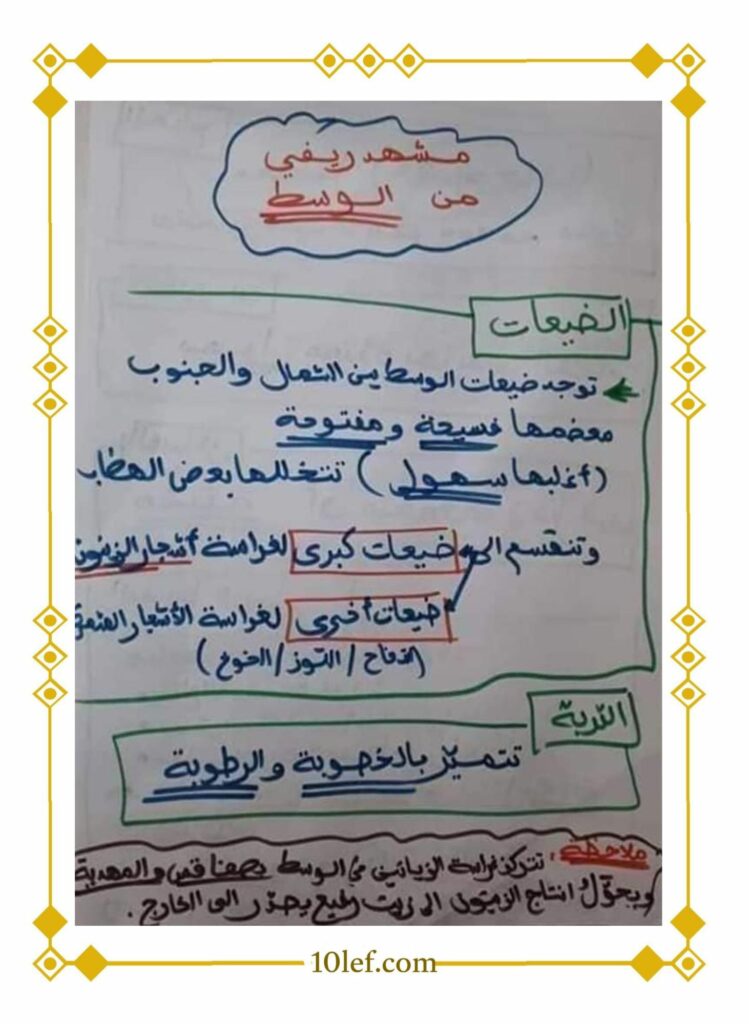 مشهد ريفي
من الوسط
الضيعات
توجد ضيعات الوسط بين الشمال والجنوب
معضمها فسيحة و مفتوحة
(أغلبها سهولي) تتخللها بعض الهضاب
وتنقسم الى ضيعات كبرى لغراسة أشجار الزيتون
ضيعات أخرى لغراسة الأشجار المثمرة
(التفاح / اللوز / الخوخ)
التربة
تتميّز بالخصوبة والرطوبة
ملاحظة: تتركز غراسة الزياتين في الوسط بصفاقس والمهدية
ويحوّل انتاج الزيتون الى زيت رفيع يصدّر الى الخارج.
10lef.com